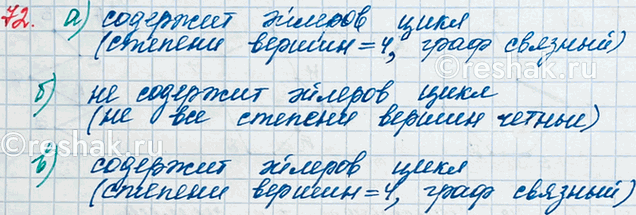 72. а) содержит эйлеров цикл
(степени вершин=4, граф связный)
б) не содержит эйлеров цикл
(не все степени вершин четные)
в) содержит эйлеров цикл
(степени вершин=4, граф связный)
©reshak.ru
©reshak.ru
©reshak.ru